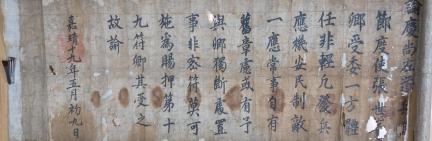 諭慶尙左道
節度使張世
卿受委一方體
任非輕凡發兵
應機安民制敵
一應常事自有
舊章慮或有予
與卿獨斷處置
事非密符莫可
施爲賜押第十
九符卿其受之
故諭
嘉靖十九年五月初九日